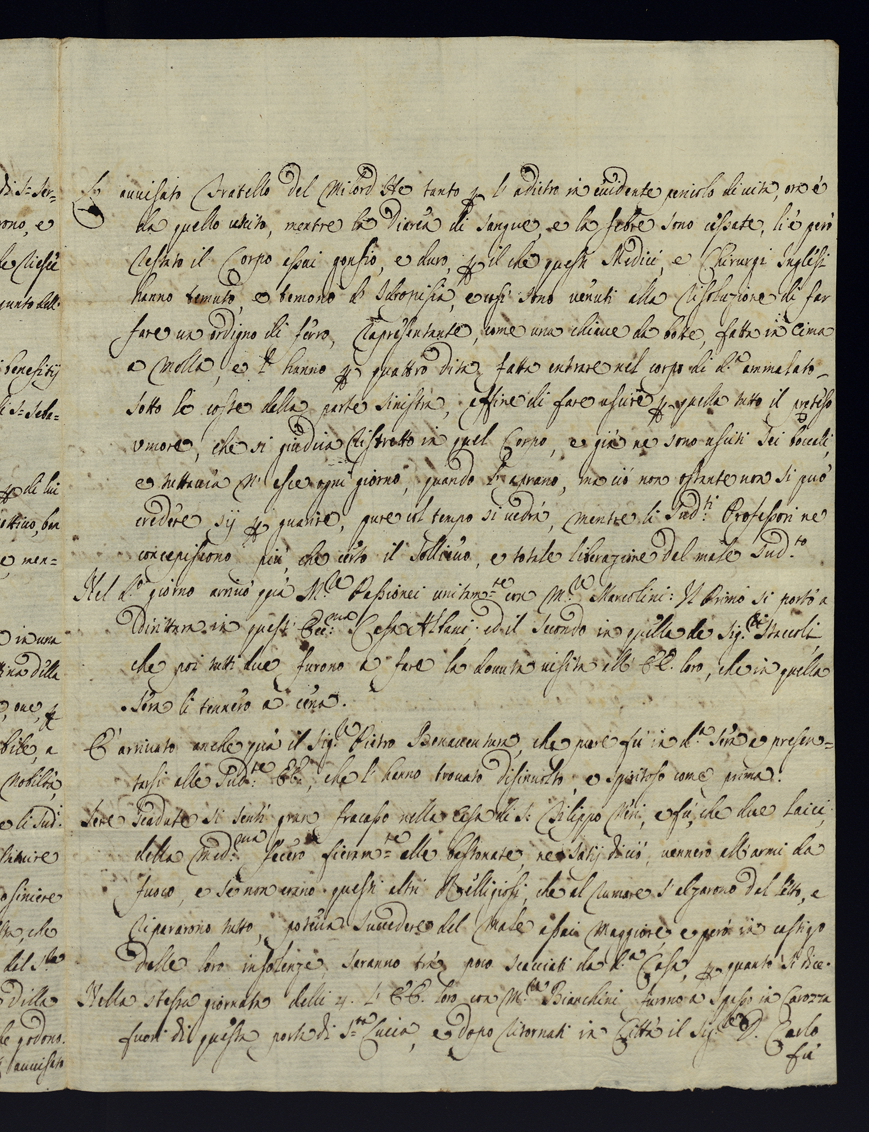 L'avvisato Fratello del Milord Ste tanto p l'adietro in evidente pericolo di vita, ora è
da quello uscito, mentre la Diarea di Sangue, e la febre sono cessate, li è però
restato il Corpo assai gonfio, e duro, p il che questi Medici, e Chirurgi Inglesi
hanno temuto, e temono d'Idropisia, e così sono venuti alla risoluzione di far
fare un ordigno di ferro, rapresentante, come una chiave da botte, fatta in cima
a Molla, e l'hanno p quattro dita fatta entrare nel corpo di d.º ammalato
sotto le coste della parte sinistra, affine di fare uscire p quella tutto il preteso
umore, che si giudica ristretto in quel Corpo, e già ne sono usciti Sei boccali,
e tuttavia n'esce ogni giorno, quando l'aprano, ma ciò non ostante non si può
credere sij p guarire, pure col tempo si vedrà, mentre li Sud.ti Professori ne
concepiscono più, che certo il Sollievo, e totale liberazione dal male Sud.to
Nel d.º giorno arrivò quà M.re Passionei unitam.te con M.re Marcolini: Il Primo si portò a
dirittura in questa Ecc.ma Casa Albani, ed il Secondo in quella de Sig.ri Staccoli
che poi tutti due furono a fare la dovuta visita all'EE. loro, che in quella
Sera li tennero a cena.
E' arrivato anche quà il Sig.re Pietro Benaventura, che pure fù in d.ta Sera a presen=
tarsi alle Sud.te EE., che l'hanno trovato disinvolto, e Spiritoso come prima.
Sere Scadute si sentì gran fracasso nella Casa di S. Filippo Neri, e fù, che due Laici
della Med.ma fecero fieram.te alle bastonate, ne Satij di ciò, vennero all'armi da
fuoco, e Se non erano questi altri Relligiosi, che al rumore s'alzarono dal letto, e
ripararono tutto, poteva Succedere del Male assai Maggiore, e però in castigo
delle loro insolenze saranno trà poco scacciati da d.ta Casa, p quanto Si dice.
Nella stessa giornata delli 4. L'EE. loro con M.re Bianchini furono a Spasso in Carozza
fuori di questa porta di S.ta Lucia, e dopo ritornati in Città il Sig.re D. Carlo
fù